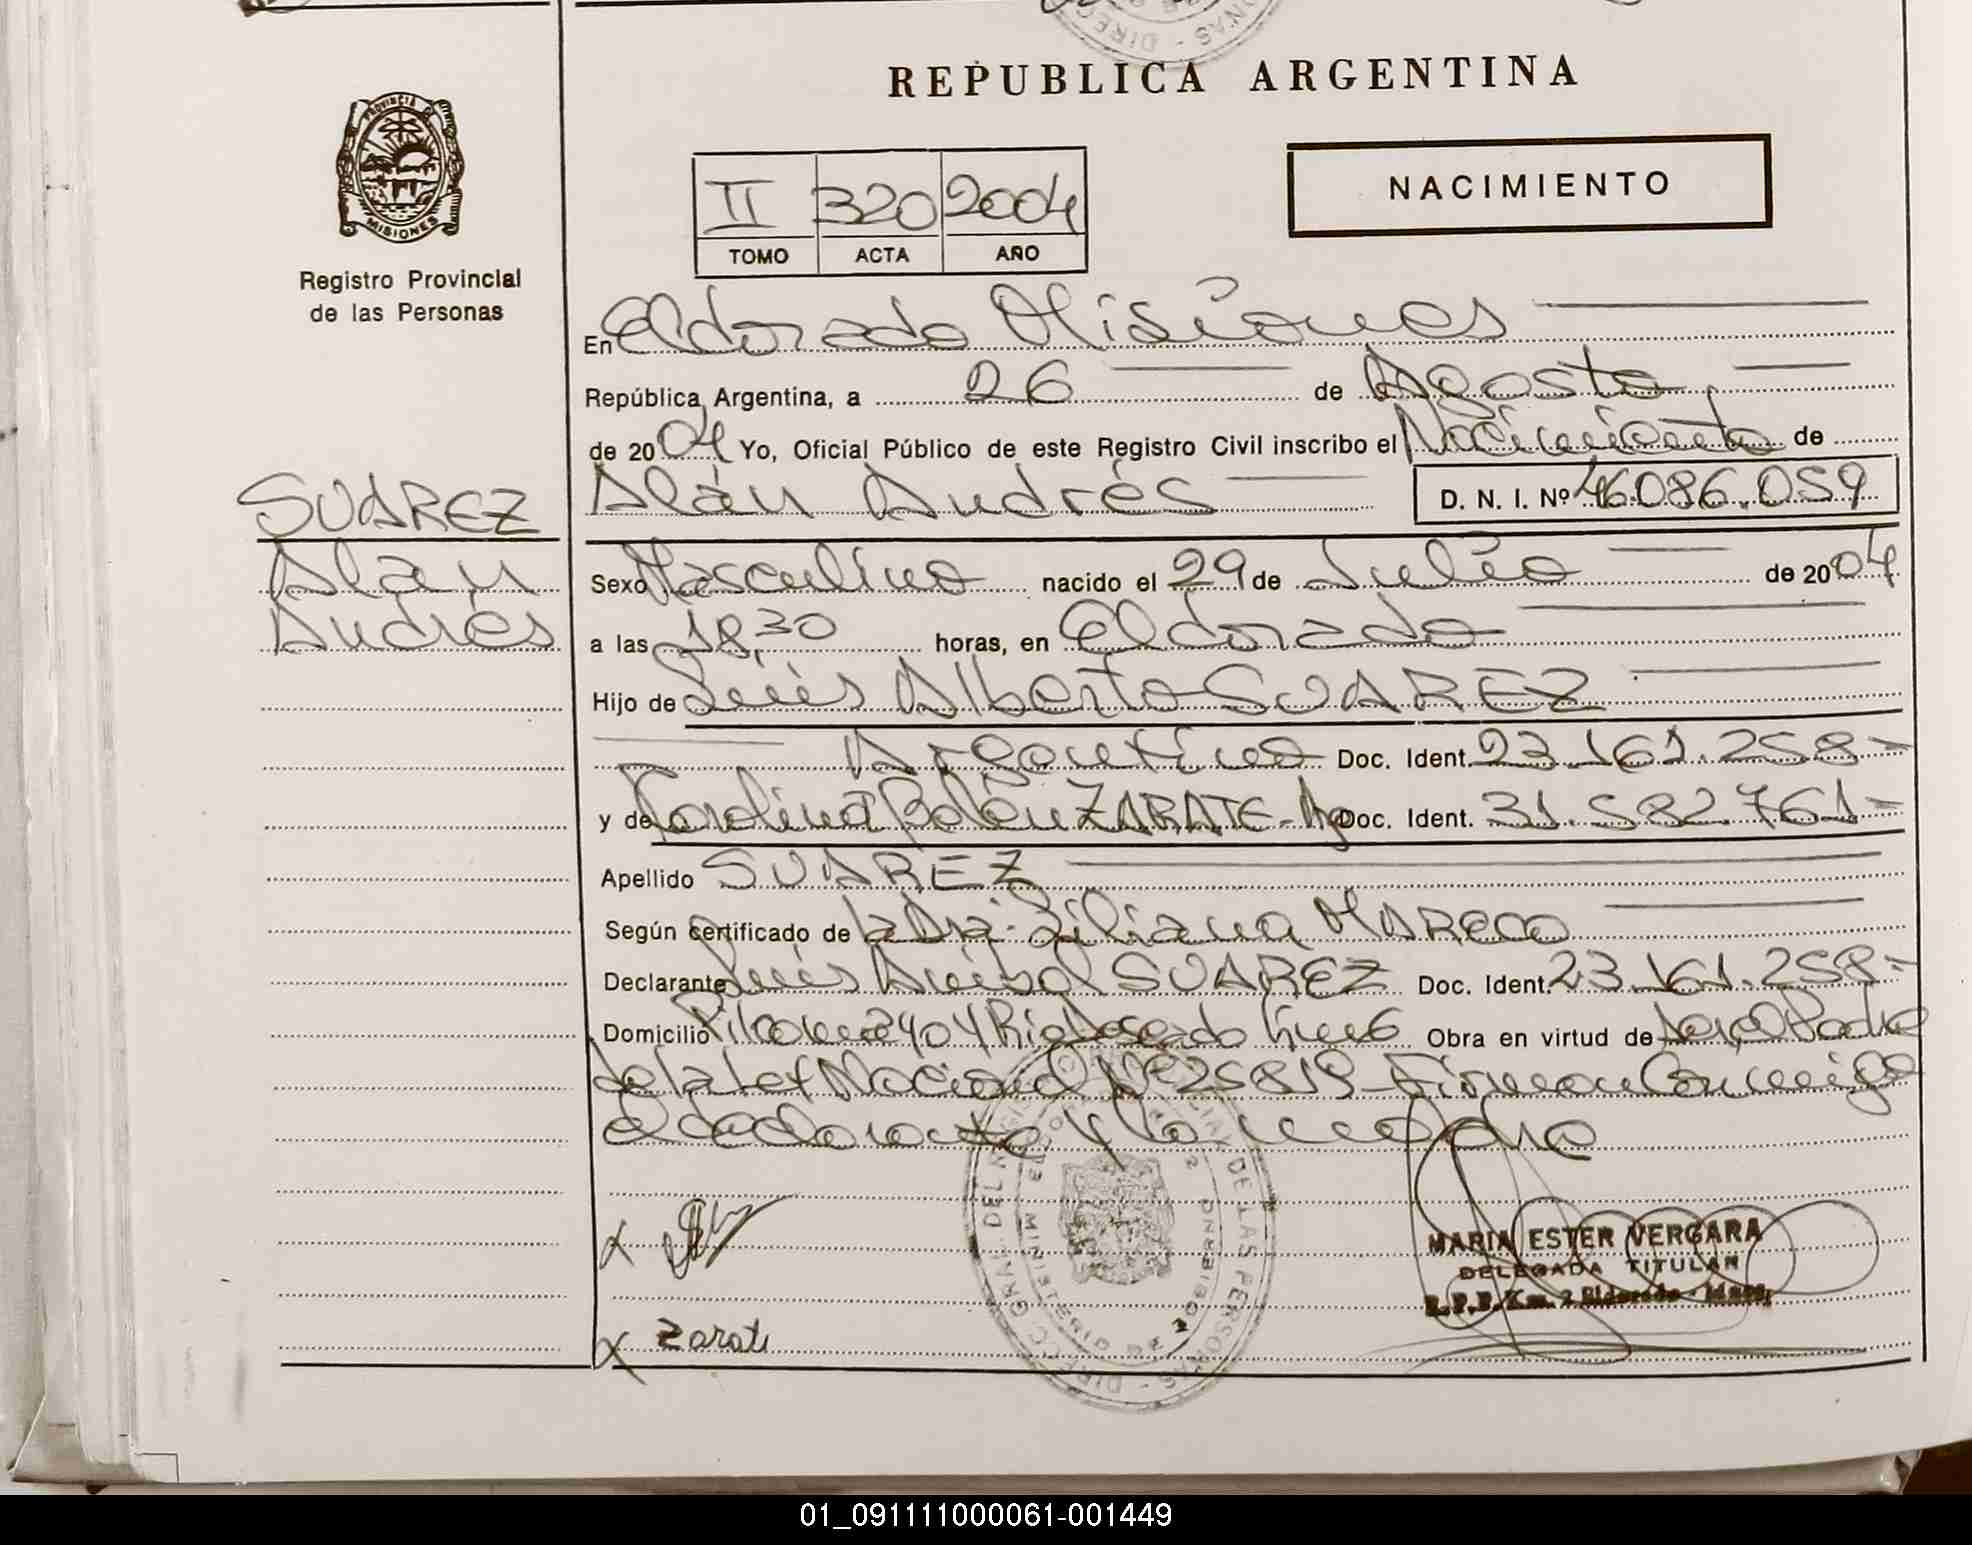 REPUBLICA ARGENTINA
PROVINCIA
MISIONES
Registro Provincial
de las Personas
NACIMIENTO
II 320 2004
TOMO ACTA AÑO
En Eldorado Misiones
República Argentina, a 26 de Agosto
de 2004 Yo, Oficial Público de este Registro Civil inscribo el Nacimiento de
Alán Andrés D. N. I. Nº 46.086.059
SUAREZ
Alán
Andrés
Sexo Masculino nacido el 29 de Julio de 2004
a las 18,30 horas, en Eldorado
Hijo de Luis Alberto SUAREZ
Argentino Doc. Ident. 23.161.258-
y de Carolina Belén ZARATE - Arg Doc. Ident. 31.582.761-
Apellido SUAREZ
Según certificado de la Dra. Liliana MARECO
Declarante Luis Anibal SUAREZ Doc. Ident. 23.161.258-
Domicilio 2404 Km 6 Obra en virtud de Padre
de la Ley Nacional Nº 25819 - Firman Conmigo
el declarante y la madre
MARIA ESTER VERGARA
DELEGADA TITULAR
R.P.P. Km. 2 Eldorado - Mnes.
x
x Zarate
01_091111000061-001449